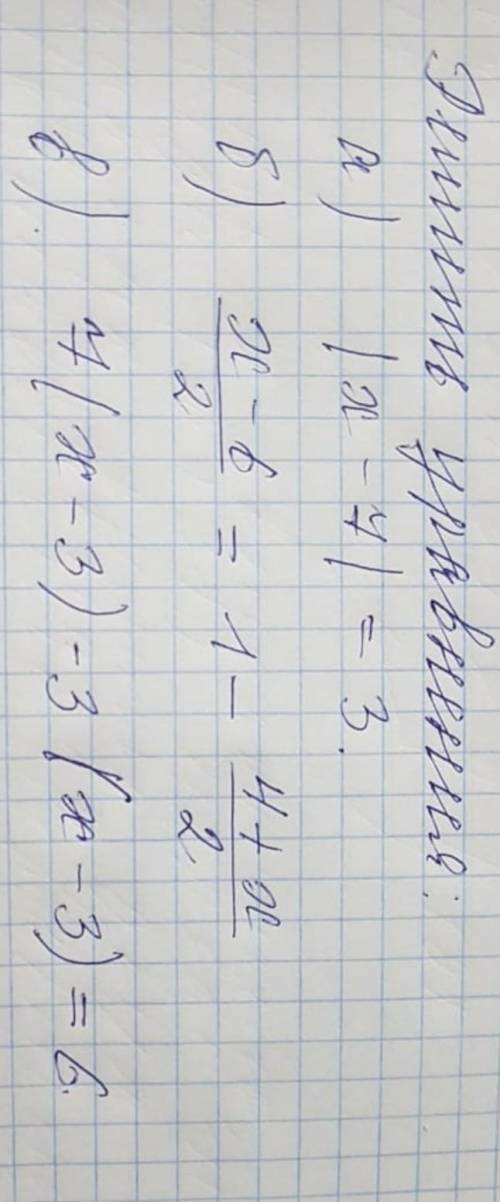 Решить уравнения:
а) |x - 7| = 3.
б) \frac{x - 6}{2} = 1 - \frac{4 + x}{2}
в) 7(x - 3) - 3(x - 3) = 6.